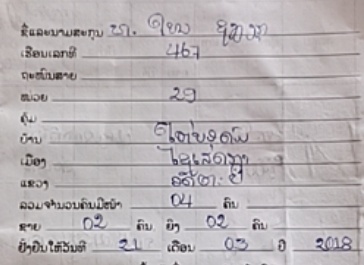 ຊື່ແລະນາມສະກຸນ ທ.
ເຮືອນເລກທີ 467
ຖະໜົນສາຍ
ໜ່ວຍ 29
ຄຸ້ມ
ບ້ານ
ເມືອງ ໄຊເສດຖາ
ແຂວງ ອັດຕະປື
ລວມຈຳນວນຄົນມີໜ້າ 04 ຄົນ
ຊາຍ 02 ຄົນ ຍິງ 02 ຄົນ
ຢັ້ງຢືນໃຫ້ວັນທີ 21 ເດືອນ 03 ປີ 2018